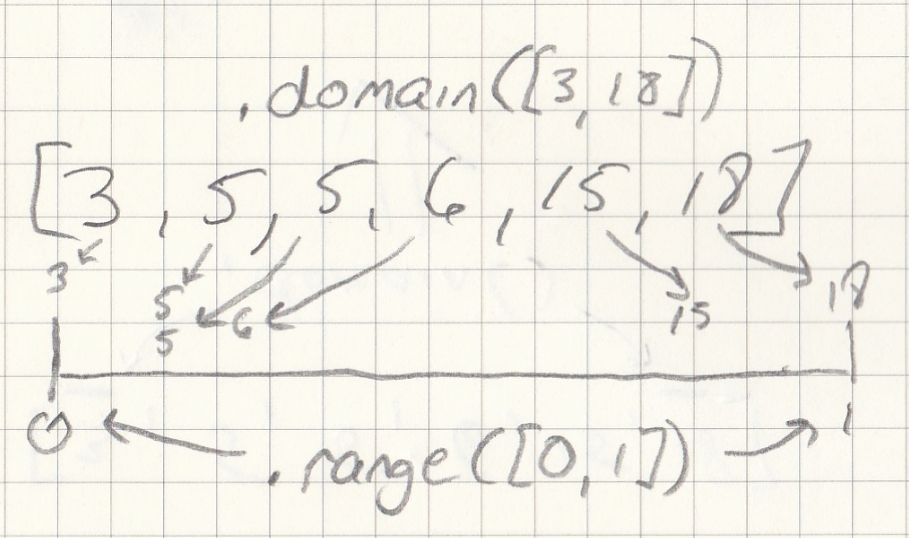 .domain([3,18])
[3, 5, 5, 6, 15, 18]
3 5 6 15 18
5
0 1
.range([0,1])